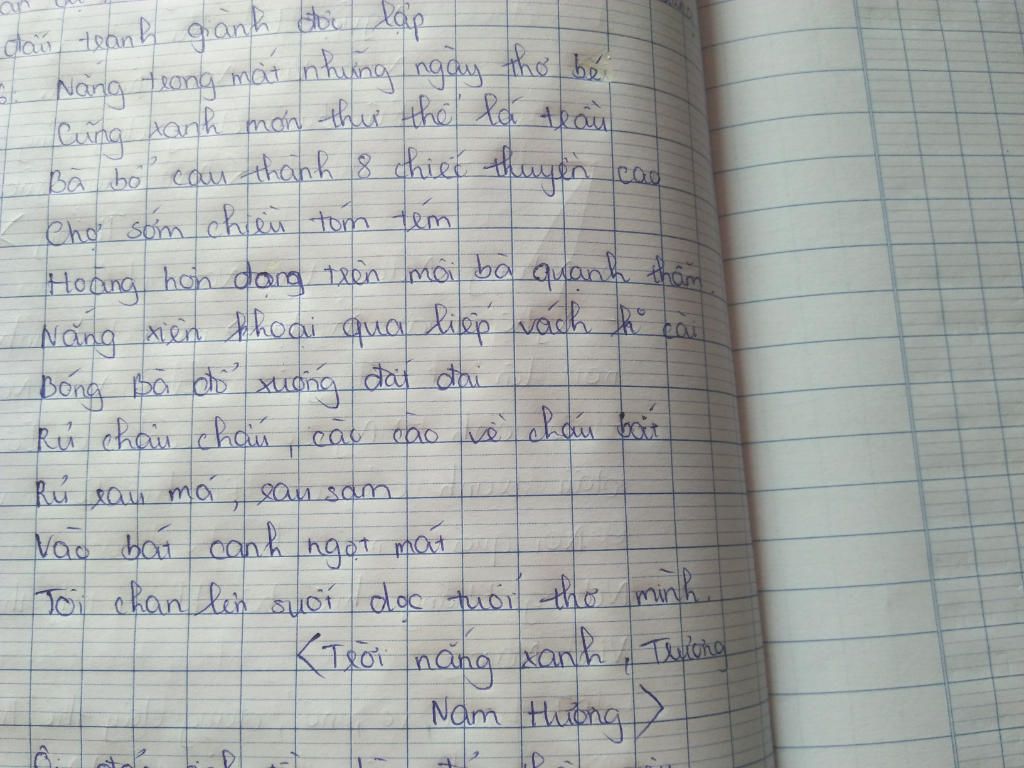 đấu tranh giành độc lập
Nắng trong mắt những ngày thơ bé
Cũng xanh mơn thư thể lá trầu
Bà bổ cau thành 8 chiếc thuyền cao
Chợ sớm chiều tóm tém
Hoàng hôn đọng trên môi bà quạnh thẫm
Nắng xiên khoai qua liếp vách
Bóng bà đổ xuống đất đai
Rủ châu chấu, cào cào về cháu bắt
Rủ rau má, rau sam
Vào bát canh ngọt mát
Tôi chan lên suốt dọc tuổi thơ mình.
<Trời nắng xanh, Trương
Nam Hương>